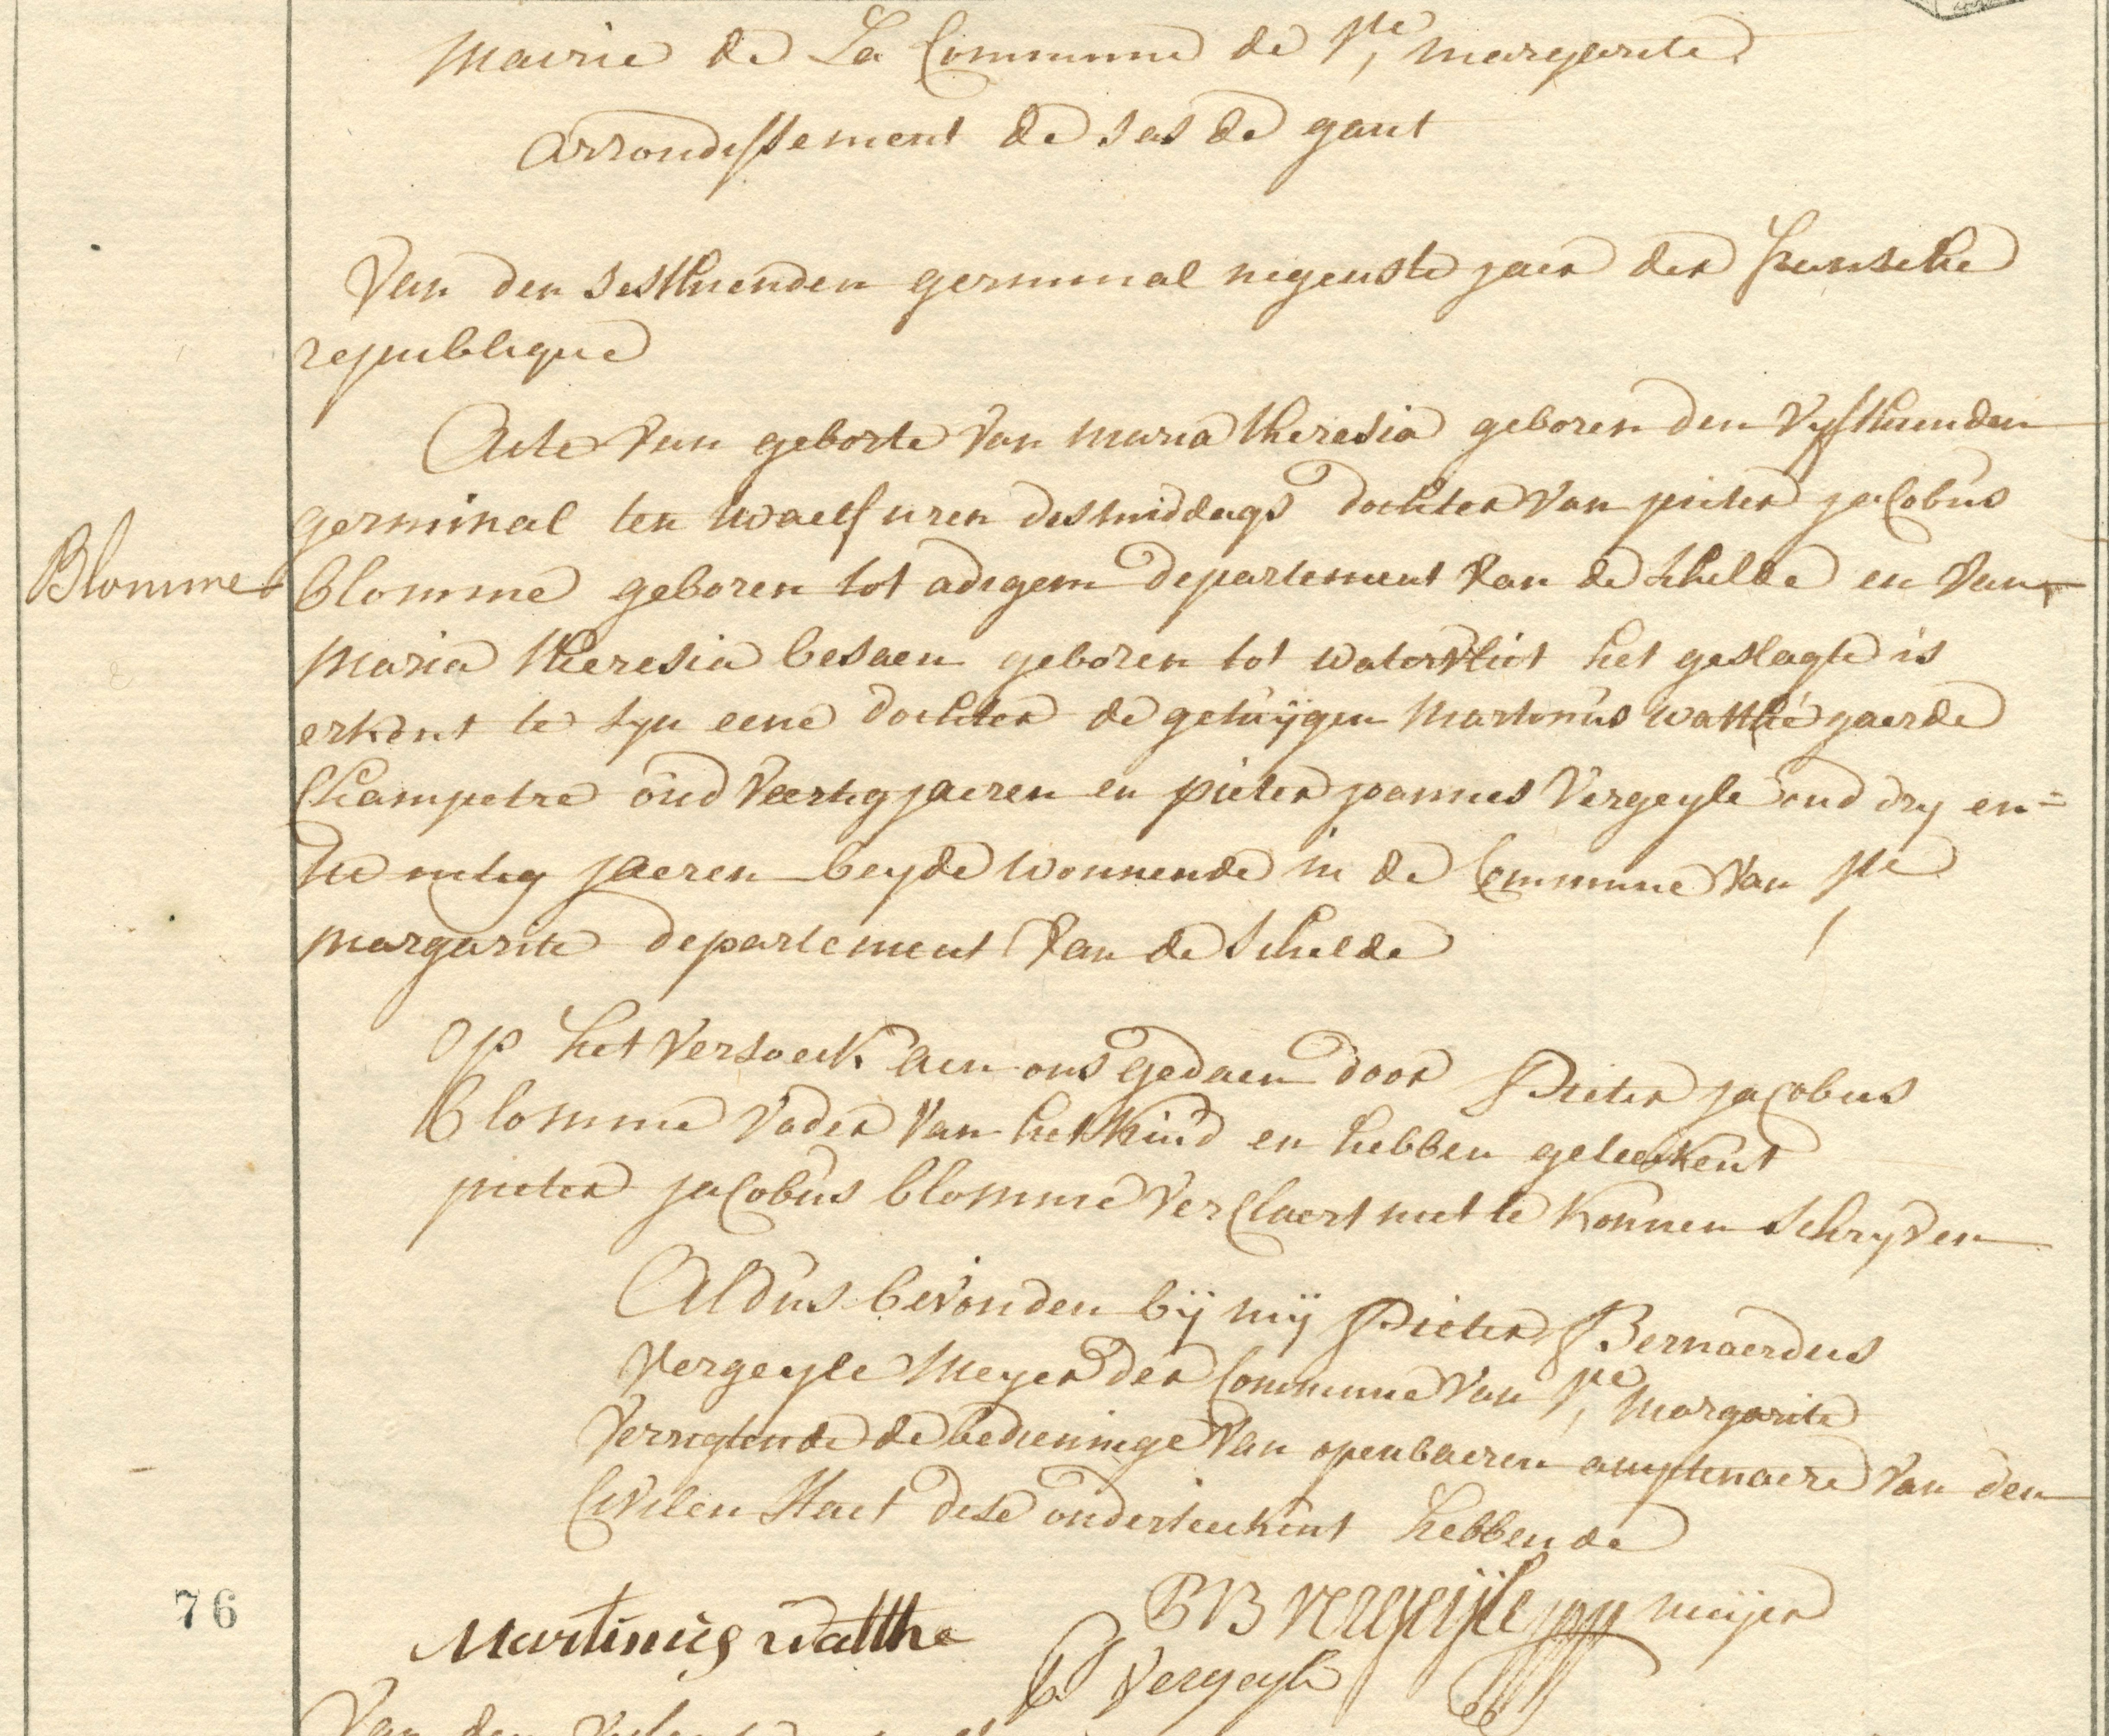 Mairie de La Commune de Ste Margarite
Arrondissement de sas de gant
Van den sesthienden germinal negenste jaer der fransche
republique
Acte van geborte van maria theresia geboren den vyfthienden
germinal ten twaelf uren desmiddags dochter van pieter jacobus
Blomme
blomme geboren tot adegem departement van de schelde en van
Maria theresia besaen geboren tot watervliet het geslagte is
erkent te syn eene dochter de getuÿgen Martinus watthé gaerde
Champetre oud veertig jaeren en pieter joannes Vergeyle oud dry en=
twentig jaeren beyde wonnende in de Commune van Ste
margarite departement van de Schelde
Op het versoeck aen ons gedaen door Pieter jacobus
Blomme vader van het kind en hebben geteekent
pieter jacobus blomme verclaert niet te konnen schryven
Aldus bevonden bÿ mÿ Pieter Bernaerdus
Vergeyle Meyer der Commune van Ste Margarite
verrigtende de bedieninge van openbaeren amptenaere van den
Civilen Staet dese onderteekent hebbende
76
Martinus watthe
PB vergeÿle meÿer
PJ Vergeyle
Van den